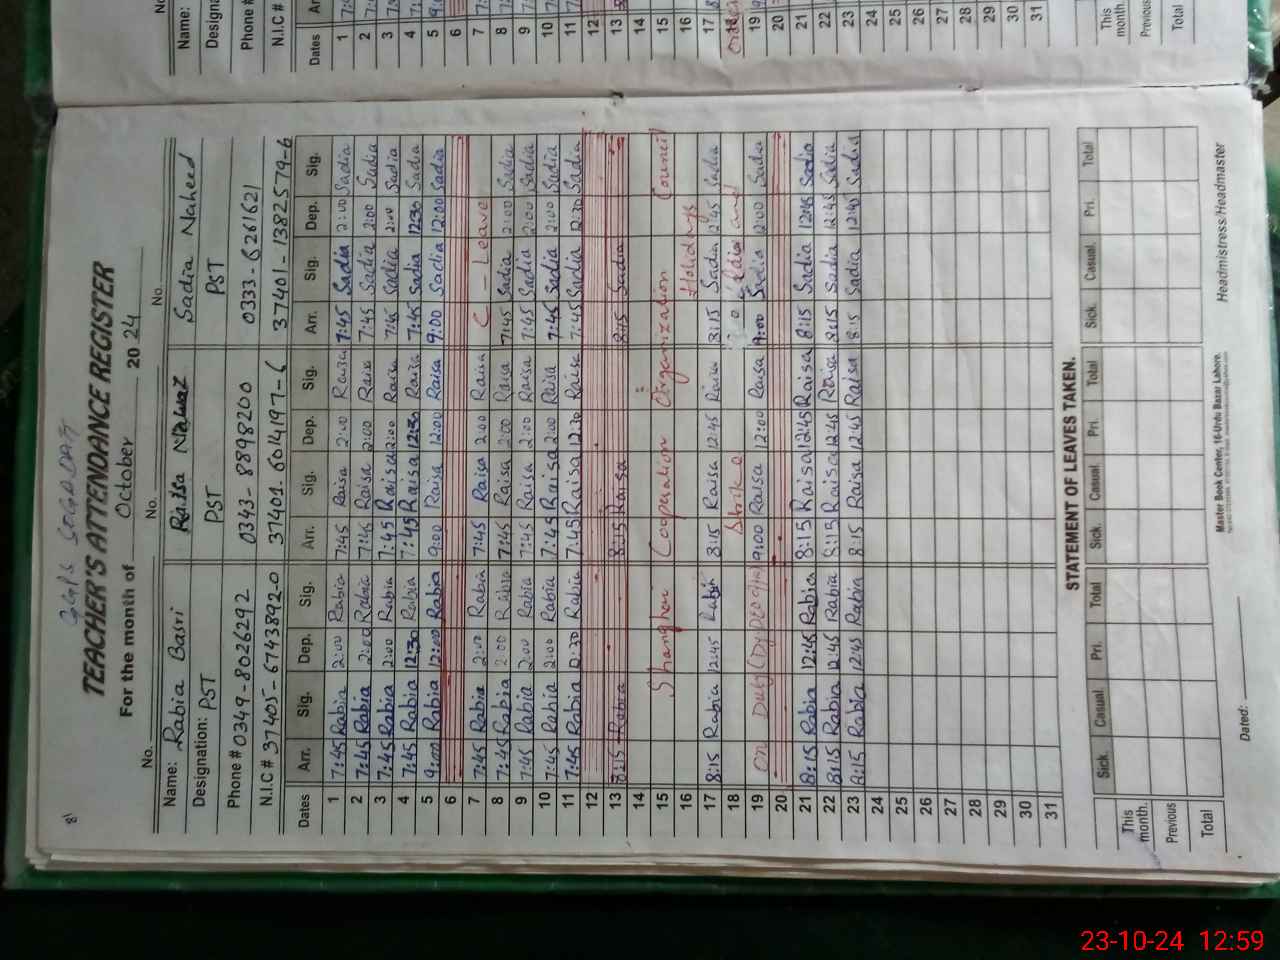 81
TEACHER'S ATTENDANCE REGISTER
For the month of October 2024
No. No. No.
Name: Rabia Basri Raisa Nawaz Sadia Naheed
Designation: PST PST PST
Phone # 0349-8026292 0343-8898200 0333-6261621
N.I.C # 37405-6743892-0 37401-6014197-6 37401-1382579-6
Dates Arr. Sig. Dep. Sig. Arr. Sig. Dep. Sig. Arr. Sig. Dep. Sig.
1 7:45 Rabia 2:00 Rabia 7:45 Raisa 2:00 Raisa 7:45 Sadia 2:00 Sadia
2 7:45 Rabia 2:00 Rabia 7:45 Raisa 2:00 Raisa 7:45 Sadia 2:00 Sadia
3 7:45 Rabia 2:00 Rabia 7:45 Raisa 2:00 Raisa 7:45 Sadia 2:00 Sadia
4 7:45 Rabia 12:30 Rabia 7:45 Raisa 12:30 Raisa 7:45 Sadia 12:30 Sadia
5 9:00 Rabia 12:00 Rabia 9:00 Raisa 12:00 Raisa 9:00 Sadia 12:00 Sadia
6
7 7:45 Rabia 2:00 Rabia 7:45 Raisa 2:00 Raisa C - Leave
8 7:45 Rabia 2:00 Rabia 7:45 Raisa 2:00 Raisa 7:45 Sadia 2:00 Sadia
9 7:45 Rabia 2:00 Rabia 7:45 Raisa 2:00 Raisa 7:45 Sadia 2:00 Sadia
10 7:45 Rabia 2:00 Rabia 7:45 Raisa 2:00 Raisa 7:45 Sadia 2:00 Sadia
11 7:45 Rabia 12:30 Rabia 7:45 Raisa 12:30 Raisa 7:45 Sadia 12:30 Sadia
12
13 8:15 Rabia 8:15 Raisa 8:15 Sadia
14
15 Shanghai Cooperation Organization Council
16 Holidays
17 8:15 Rabia 12:45 Rabia 8:15 Raisa 12:45 Raisa 8:15 Sadia 12:45 Sadia
18 Strike
19 on Duty 9:00 Raisa 12:00 Raisa 9:00 Sadia 12:00 Sadia
20
21 8:15 Rabia 12:45 Rabia 8:15 Raisa 12:45 Raisa 8:15 Sadia 12:45 Sadia
22 8:15 Rabia 12:45 Rabia 8:15 Raisa 12:45 Raisa 8:15 Sadia 12:45 Sadia
23 8:15 Rabia 12:45 Rabia 8:15 Raisa 12:45 Raisa 8:15 Sadia 12:45 Sadia
24
25
26
27
28
29
30
31
STATEMENT OF LEAVES TAKEN.
Sick. Casual. Pri. Total Sick. Casual Pri. Total Sick. Casual. Pri. Total
This month.
Previous
Total
Dated: Master Book Center, 16-Urdu Bazar Lahore. Headmistress/Headmaster
Name:
Phone #
N.I.C #
Dates
1
2
3
4
5
6
7
8
9
10
11
12
13
14
15
16
17
18
19
20
21
22
23
24
25
26
27
28
29
30
31
This month.
Previous
Total
23-10-24 12:59